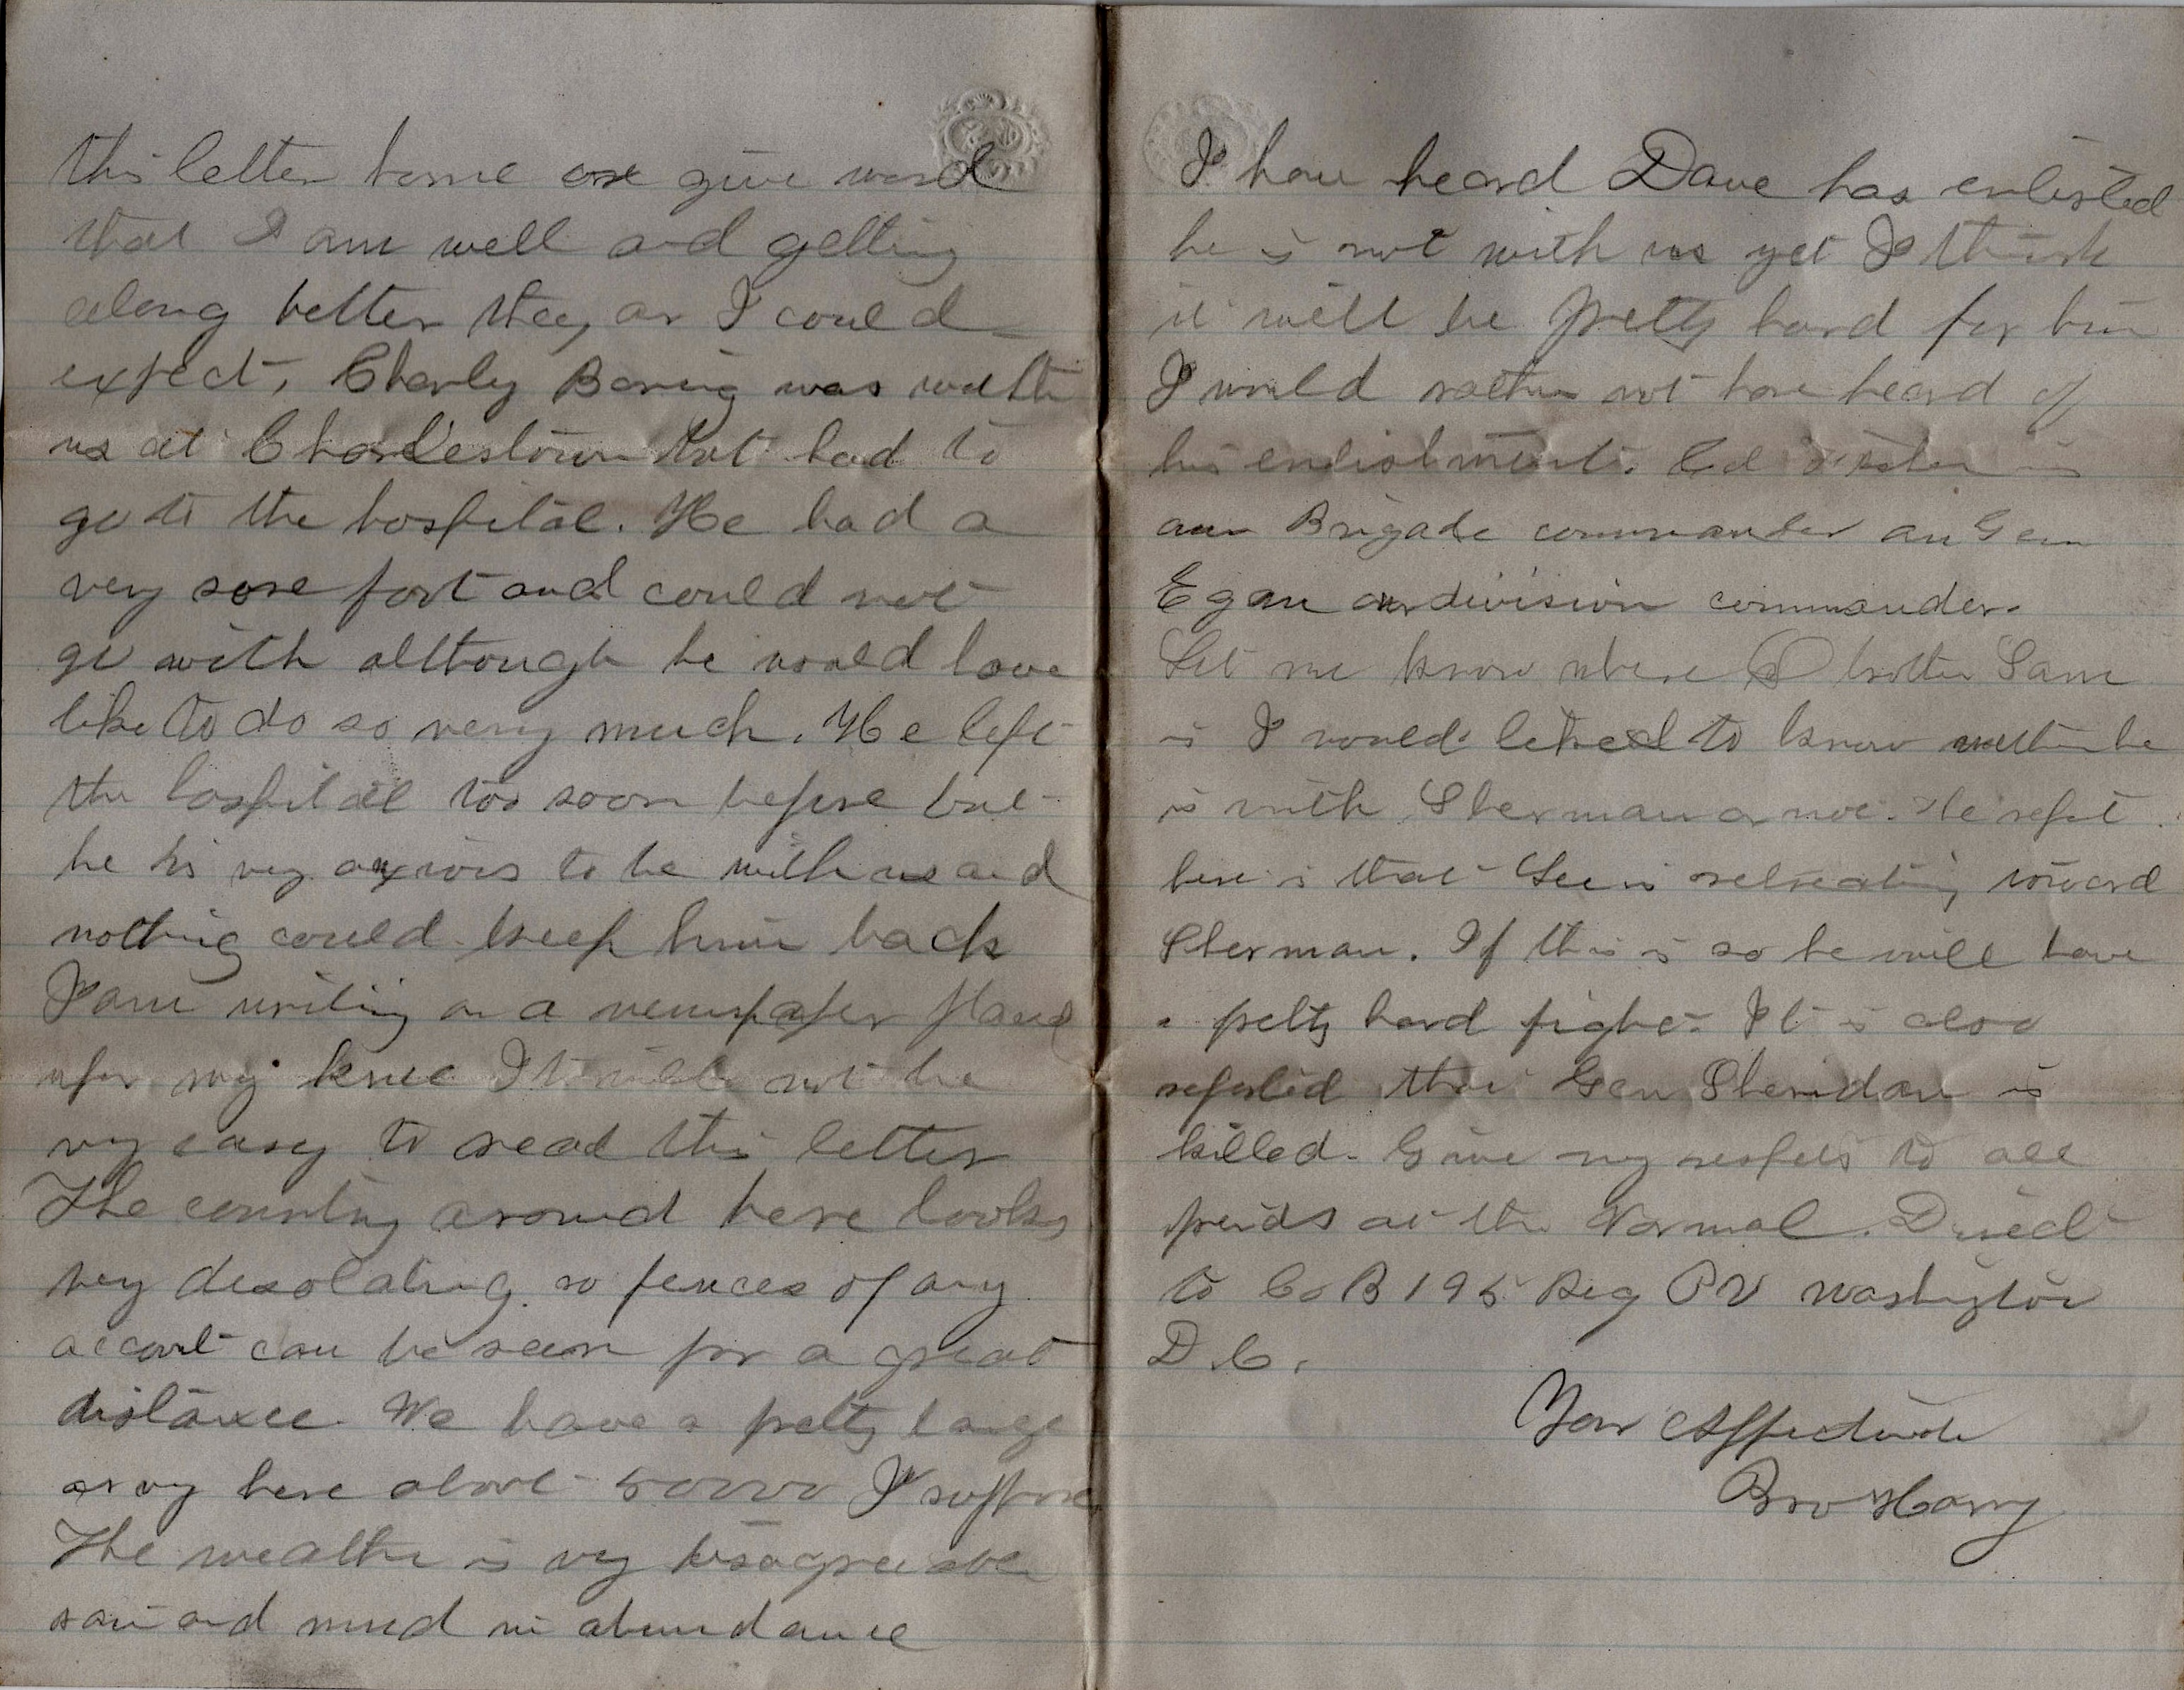 this letter home or give word
that I am well and getting
along better than as I could
expect. Charly Boring was with
us at Charlestown but had to
go to the hospital. He had a
very sore foot and could not
go with although he would have
like to do so very much. He left
the hospital too soon before but
he is very anxious to be with us and
nothing could keep him back
I am writing on a newspaper placed
upon my knee It will not be
very easy to read this letter
The country around here looks
very desolating no fences of any
account can be seen for a great
distance. We have a pretty large
army here about 50000 I suppose
The weather is very disagreeable
rain and mud in abundance
I have heard Dave has enlisted
he is not with us yet I think
it will be pretty hard for him
I would rather not have heard of
his enlistment. Col is
our Brigade commander an Gen
Egan our division commander.
Let me know where brother Sam
is I would liked to know whether he
is with Sherman or not. The report
here is that Lee is retreating toward
Sherman. If this is so he will have
a pretty hard fight. It is also
reported that Gen Sheridan is
killed. Give my respects to all
friends at the Normal. Direct
to Co B 195 Reg PV Washington
D.C.
Your Affectionate
Bro Harry